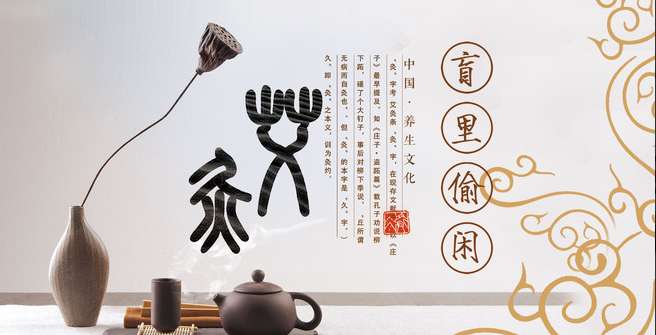 盲里偷闲
中国·养生文化
、灸、字考 艾灸条、灸、字，在现存文献以《庄
子》最早提及，如《庄子·盗跖篇》载孔子劝说柳
下跖，碰了个大钉子，事后对柳下季说，、丘所谓
无病而自灸也、。但、灸、的本字是、久、字，）
久、即、灸、之本义，训为灸灼。
艾灸